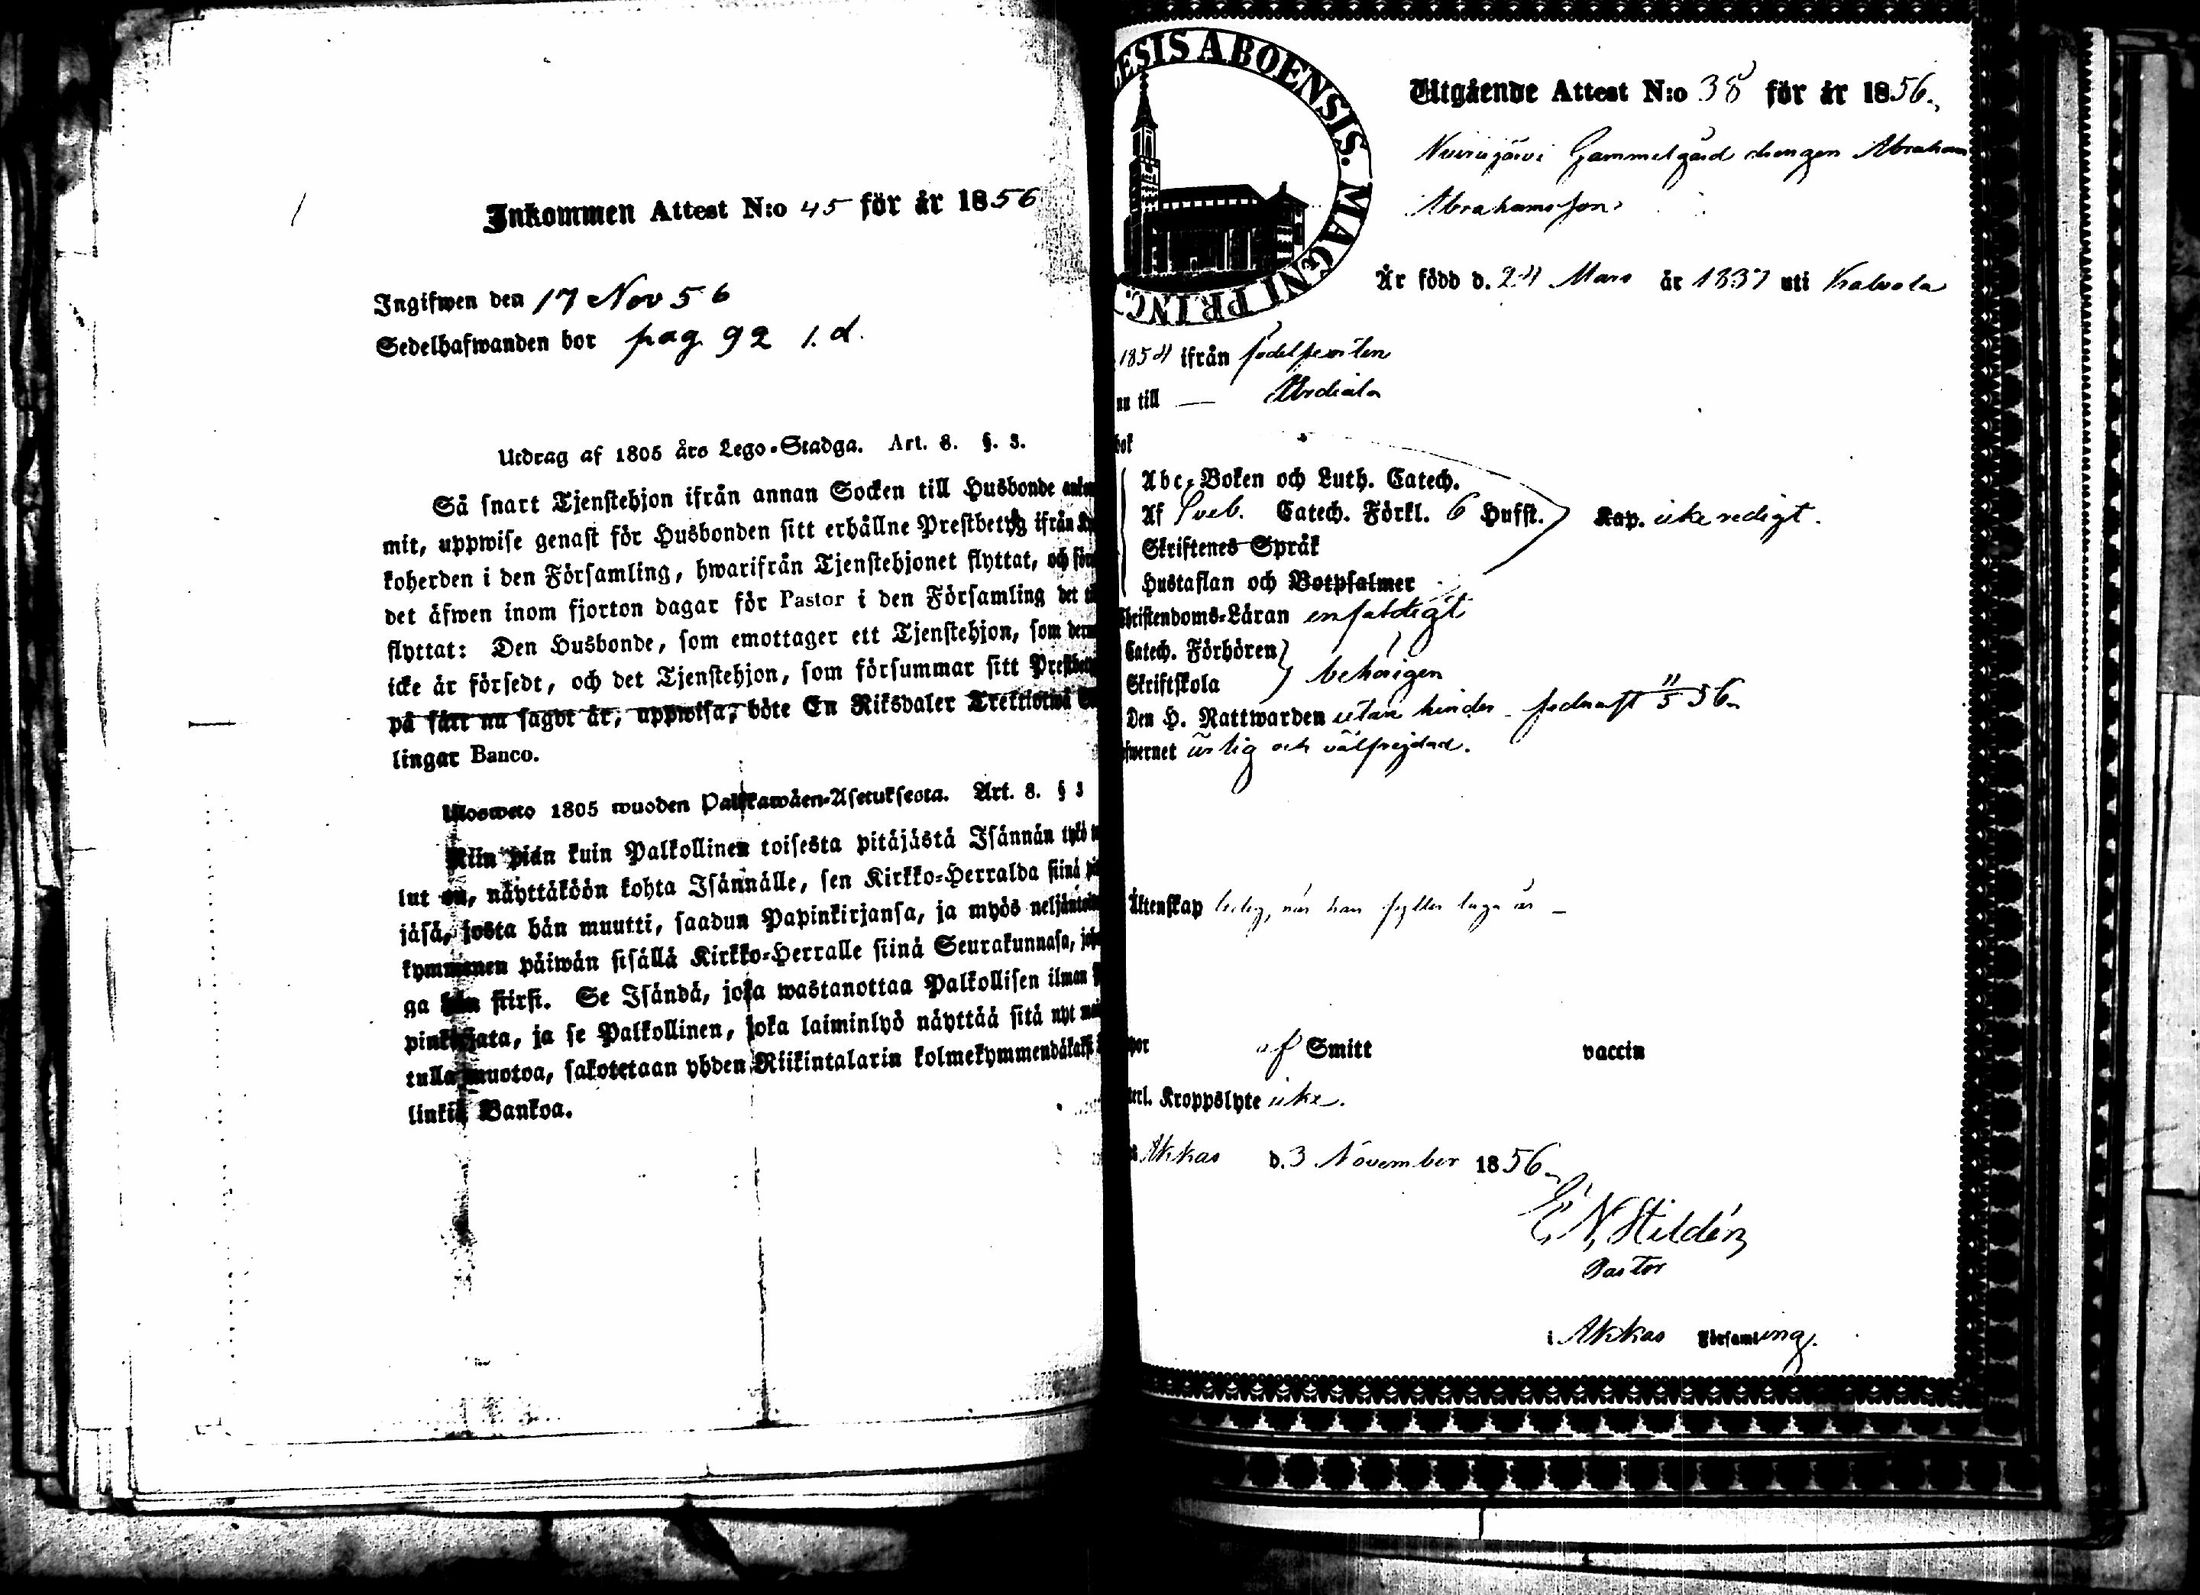 Inkommen Attest N:o 45 för år 1856
Ingifwen den 17 Nov 56
Sedelhafwanden bor pag 92 1. d.
Utdrag af 1805 års Lego-Stadga. Art. 8. §. 3.
Så snart Tjenstehjon ifrån annan Socken till Husbonde
mit, uppwise genast för Husbonden sitt erhållne Prestbetyg ifrån
koherden i den Församling, hwarifrån Tjenstehjonet flyttat, och
det äfwen inom fjorton dagar för Pastor i den Församling det
flyttat: Den Husbonde, som emottager ett Tjenstehjon, som
icke är försedt, och det Tjenstehjon, som försummar sitt
på sätt nu sagdt är, uppwisa, böte En Riksdaler Trettiotwå
lingar Banco.
Ulosweto 1805 wuoden Palkkawäen-Asetuksesta. Art. 8. § 3
Niin pian kuin Palkollinen toisesta pitäjästä Isännän tykö
lut on, näyttäköön kohta Isännälle, sen Kirkko-Herralda siinä
jäsä, josta hän muutti, saadun Papinkirjansa, ja myös
kymmenen päiwän sisällä Kirkko-Herralle siinä Seurakunnasa,
ga hän siirsi. Se Isändä, joka wastanottaa Palkollisen ilman
pinkirjata, ja se Palkollinen, joka laiminlyö näyttää sitä nyt
tulla muotoa, sakotetaan yhden Riikintalarin kolmekymmendäkaksi
linkiä Bankoa.
ESIS ABOENSIS. MAGNI PRINC.
Utgående Attest N:o 38 för år 1856.
Gammelgård drengen Abraham
Abrahamsson
Är född d. 24 Mars år 1837 uti Kalvola
1854 ifrån
till — Urdiala
bok
Abc-Boken och Luth. Catech.
Af Sveb. Catech. Förkl. 6 Hufst. Kap. icke redigt.
Skriftenes Språk
Hustaflan och Botpsalmer
Christendoms-Läran enfaldigt
Catech. Förhören
Skriftskola behörigen
Den H. Nattwarden utan hinder 56
ärlig och välfrejdad.
Äktenskap ledig, när han fyller tjugo år —
Smitt vaccin
Kroppslyte icke.
Akkas d. 3 November 1856
E. N. Hildén
Pastor
i Akkas Församling.